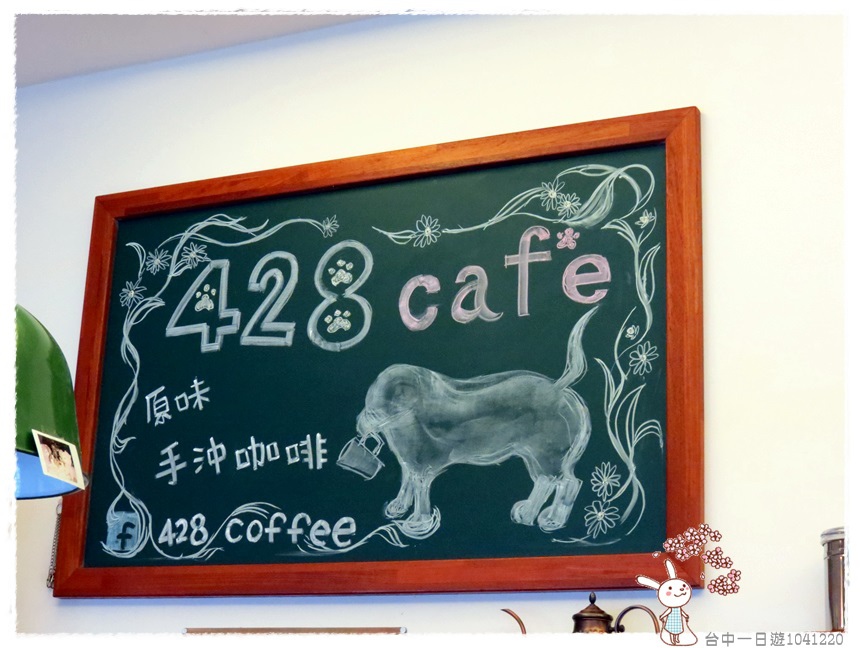 428 cafe
原味
手沖咖啡
f 428 coffee
台中一日遊1041220